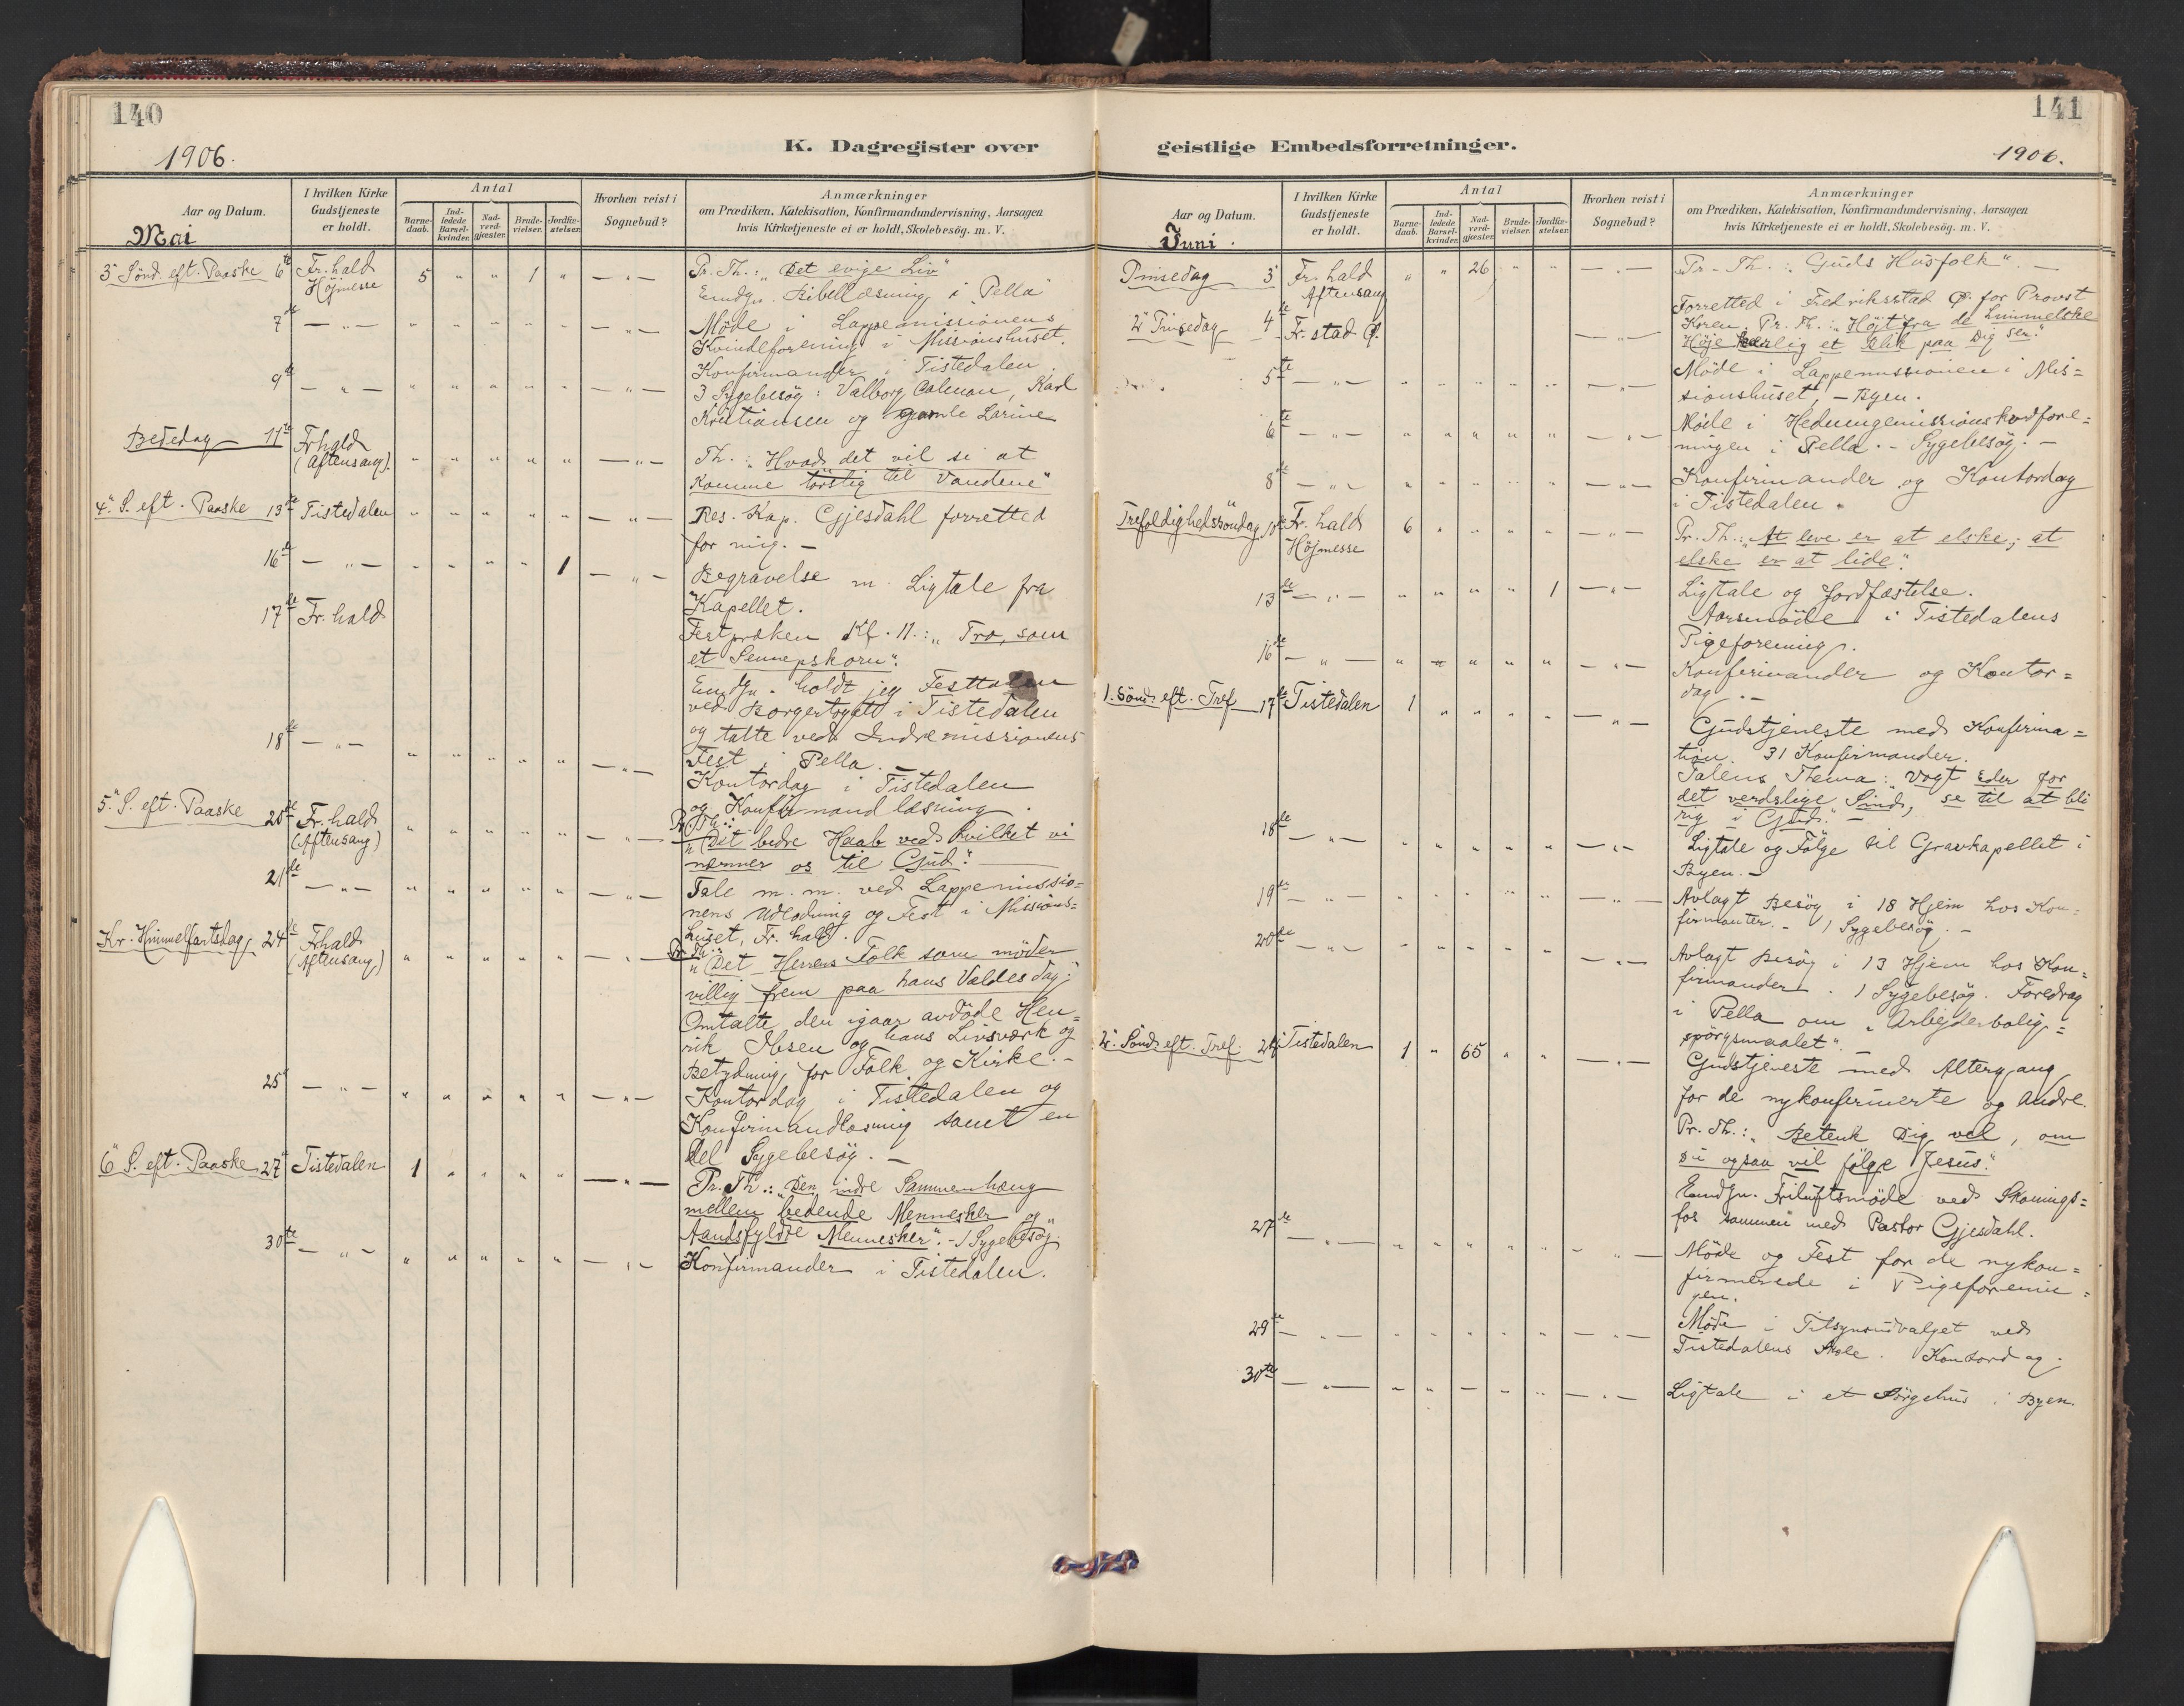 140
1906.
K. Dagregister over
Aar og Datum.
I hvilken Kirke Gudstjeneste er holdt.
Antal
Barne-daab.
Ind-ledede Barsel-kvinder.
Nad-verd-gjæster.
Brude-vielser.
Jordfæ-stelser.
Hvorhen reist i Sognebud?
Anmærkninger
om Prædiken, Katekisation, Konfirmandundervisning, Aarsagen
hvis Kirketjeneste ei er holdt, Skolebesög. m. V.
Mai
3' Sönd. eft. Paaske 6te Fr.hald Höjmesse 5 " " 1 " — " — Pr. Th.: "Det evige Liv"
Emdgn. Bibellæsning i "Pella"
7de — " — " " " " " — " — Möde i Lappemissionens
Kvindeforening i Missionshuset.
9de — " — " " " " " — " — Konfirmander i Tistedalen.
3 Sygebesög: Valborg Calman, Karl
Kristiansen og gamle Larine
Bededag 11te Fr hald (Aftensang). " " " " " — " — Th.: "Hvad det vil si at
komme törstig til Vandene"
4' S. eft. Paaske 13de Tistedalen " " " " " — " — Res. Kap. Gjesdahl forretted
for mig. —
16de — " — " " " " 1 — " — Begravelse m. Ligtale fra
Kapellet.
17de Fr. hald
Festpræken Kl. 11.: "Tro, som
et Sennepskorn".
Emdgn. holdt jeg Festtalen
ved Borgertoget i Tistedalen
og talte ved Indremissionens
Fest i Pella. —
18de — " — " " " " " — " — Kontordag i Tistedalen
og Konfirmandlæsning.
5' S. eft. Paaske 20de Fr. hald (Aftensang) " " " " " — " — Pr. Th.:
"Det bedre Haab ved hvilket vi
nærmer os til Gud". —
21de — " — " " " " " — " — Tale m. m. ved Lappemissio=
nens Udlodning og Fest i Missions=
huset, Fr. hald.
Kr. Himmelfartsdag 24de Fr hald (Aftensang) " " " " " — " — Pr. Th.:
"Det Herrens Folk som möder
villig frem paa hans Vældes dag";
Omtalte den igaar avdöde Hen=
rik Ibsen og hans Livsværk og
Betydning for Folk og Kirke. —
25' — " — " " " " " — " — Kontordag i Tistedalen og
Konfirmandlæsning samt en
Del Sygebesög. —
6' S. eft. Paaske 27' Tistedalen 1 " " " " — " — Pr. Th.: "Den indre Sammenhæng
mellem bedende Mennesker og
Aandsfyldte Mennesker". - 1 Sygebesög.
30te — " — " " " " " — " — Konfirmander i Tistedalen.
141
1906.
geistlige Embedsforretninger.
Aar og Datum.
I hvilken Kirke Gudstjeneste er holdt.
Antal
Barne-daab.
Ind-ledede Barsel-kvinder.
Nad-verd-gjæster.
Brude-vielser.
Jordfæ-stelser.
Hvorhen reist i Sognebud?
Anmærkninger
om Prædiken, Katekisation, Konfirmandundervisning, Aarsagen
hvis Kirketjeneste ei er holdt, Skolebesög. m. V.
Juni.
Pinsedag 3' Fr. hald Aftensang " " 26 " " — " — "Pr. Th.: Guds Husfolk". —
2' Pinsedag 4de Fr. stad Ø. — " — Forretted i Fredriksstad Ø. for Provst
Koren. Pr. Th.: "Höjt fra de himmelske
Höje kærlig et Blik paa Dig ser."
5te — " — " " " " " — " — Möde i Lappemissionen i Mis=
sionshuset, - Byen.
6te — " — " " " " " — " — Möde i Hedningemissionskvdfore=
ningen i Pella. - Sygebesög. —
8de — " — " " " " " — " — Konfirmander og Kontordag
i Tistedalen.
Trefoldighedssöndag 10de Fr. hald Höjmesse 6 " " " " — " — Pr. Th.: "At leve er at elske; at
elske er at lide".
13de — " — " " " " 1 — " — Ligtale og Jordfæstelse.
Aarsmöde i Tistedalens
Pigeforening.
16de — " — " " " " " — " — Konfirmander og Kontor=
dag. —
1. Sönd. eft. Tref 17de Tistedalen 1 " " " " — " — Gudstjeneste med Konfirma=
tion. 31 Konfirmander.
Talens Thema: Vogt eder for
det verdslige Sind, se til at bli
rig i Gud." —
18de — " — " " " " " — " — Ligtale og Fölge til Gravkapellet i
Byen. —
19de — " — " " " " " — " — Avlagt Besög i 18 Hjem hos Kon=
firmanter. - 1 Sygebesög. —
20de — " — " " " " " — " — Avlagt Besög i 13 Hjem hos Kon=
firmander. 1 Sygebesög. Foredrag
i Pella om "Arbejderbolig=
spörgsmaalet". —
2' Sönd. eft. Tref. 24' Tistedalen 1 " 65 " " — " — Gudstjeneste med Altergang
for de nykonfirmerte og Andre.
Pr. Th.: "Betenk Dig vel, om
Du ogsaa vil fölge Jesus."
Emdgn. Friluftsmöde ved Skonings=
fos sammen med Pastor Gjesdahl.
27de — " — " " " " " — " — Möde og Fest for de nykon=
firmerede i Pigeforenin=
gen.
29de — " — " " " " " — " — Möde i Tilsynsudvalget ved
Tistedalens Skole. Kontordag.
30te — " — " " — " " — " — Ligtale i et Sörgehus i Byen.